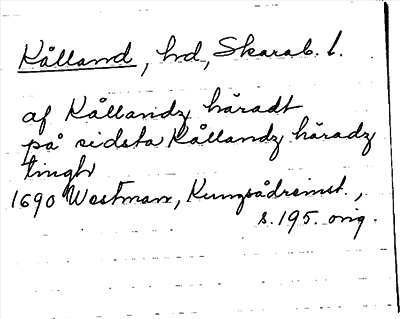 Kålland, hd, Skarab. l.
af Kållandz häradt
på sidsta Kållandz häradz
tingh
1690 Westman, Kungsådreinst.,
s. 195. orig.